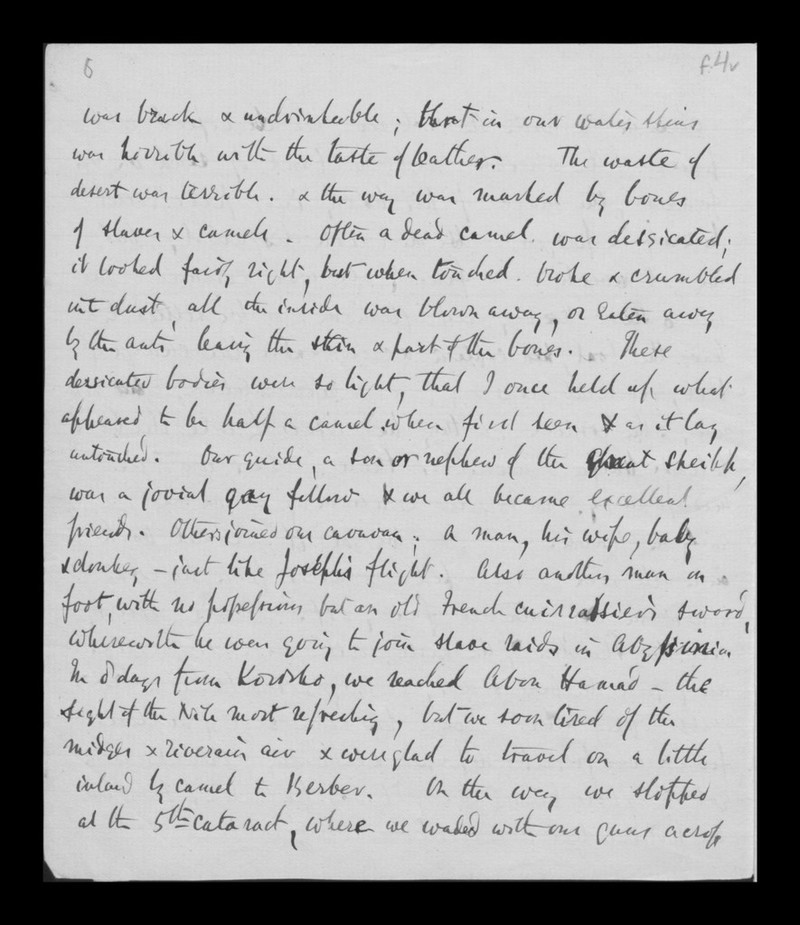 6 f.4v
was brack & undrinkable; that in our water skins
was horrible with the taste of leather. The waste of
desert was terrible. & the way was marked by bones
of slaves & camels. Often a dead camel. was dessicated;
it looked fairly right, but when touched. broke & crumbled
into dust, all the inside was blown away, or eaten away
by the ants leaving the skin & part of the bones. These
dessicated bodies were so light, that I once held up what
appeared to be half a camel. when first seen & as it lay
untouched. Our guide, a son or nephew of the great sheikh,
was a jovial gay fellow & we all became excellent
friends. Others joined our caravan; a man, his wife, baby
& donkey, – just like Joseph's flight. Also another man on
foot, with no possessions but an old French cuirassier's sword,
wherewith he was going to join slave raids in Abyssinia
In 8 days from Korosko, we reached Abou Hamad – the
sight of the Nile most refreshing, but we soon tired of the
midges & riverain air & were glad to travel on a little
inland by camel to Berber. On the way we stopped
at the 5th cataract, where we waded with our guns across